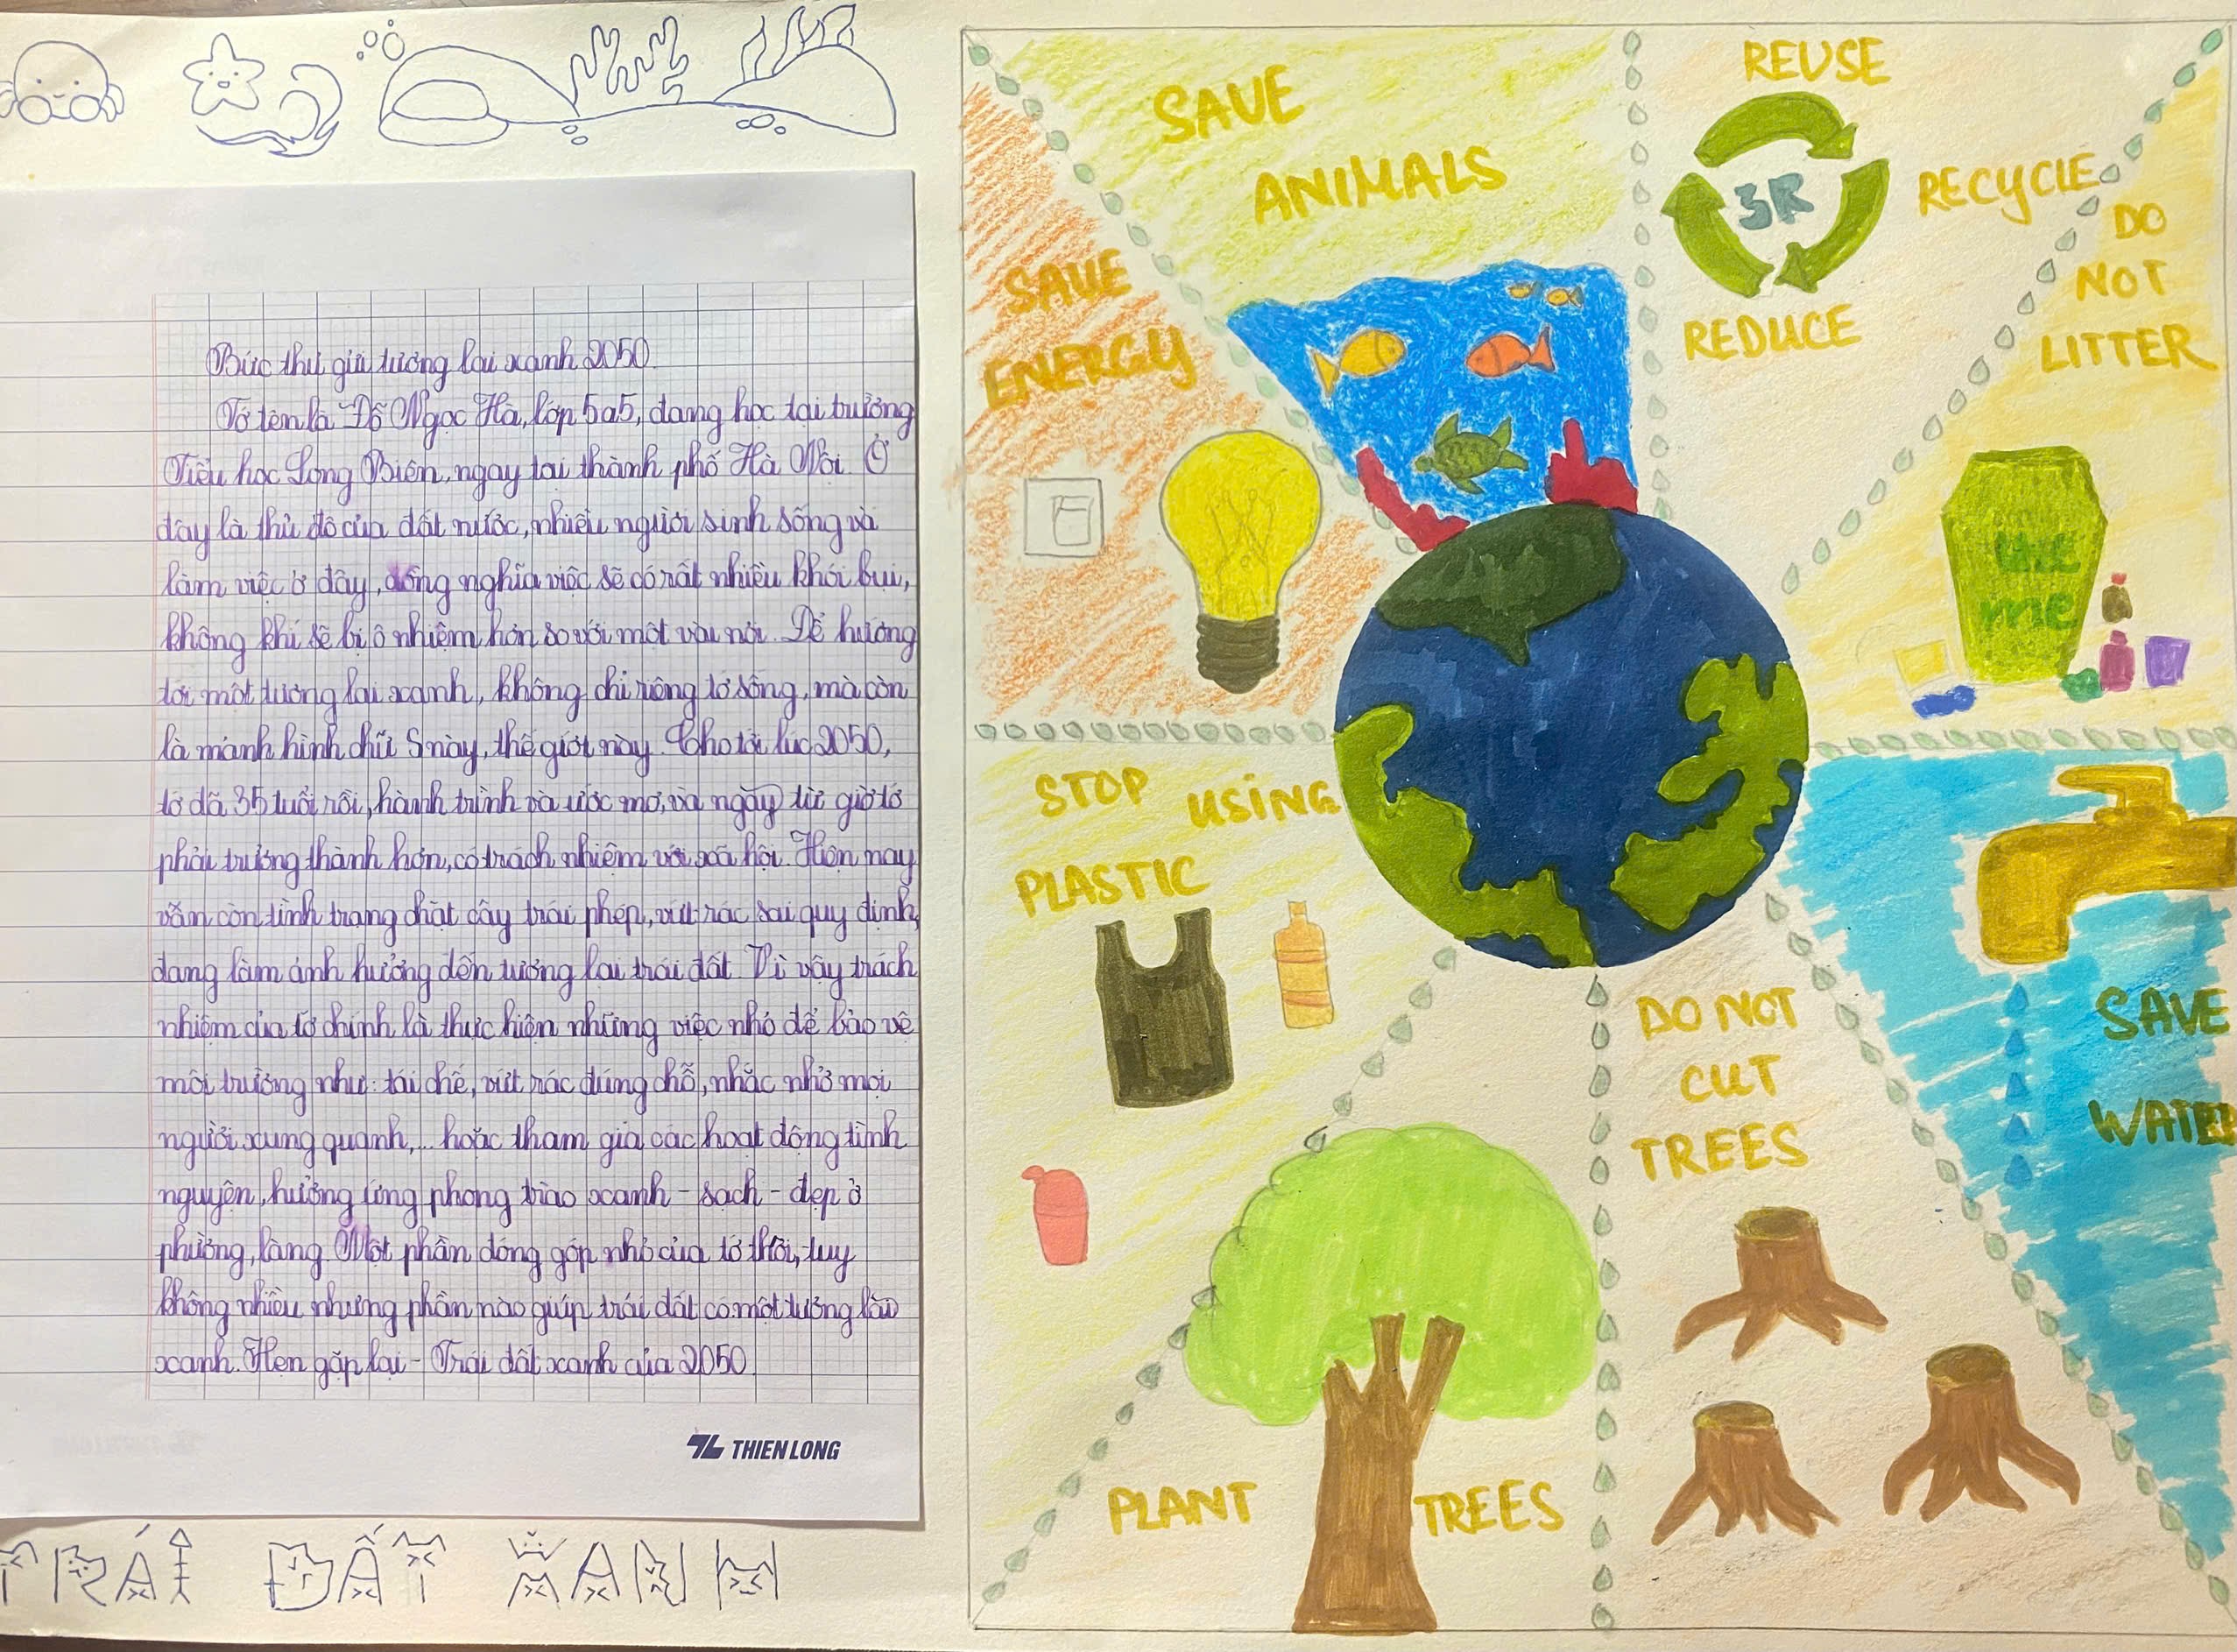 Bức thư gửi tương lai xanh 2050
Tớ tên là Đỗ Ngọc Hà, lớp 5a5, đang học tại trường
Tiểu học Long Biên, ngay tại thành phố Hà Nội. Ở
đây là thủ đô của đất nước, nhiều người sinh sống và
làm việc ở đây, đồng nghĩa việc sẽ có rất nhiều khói bụi,
không khí sẽ bị ô nhiễm hơn so với một vài nơi. Để hướng
tới một tương lai xanh, không chỉ riêng tớ sống, mà còn
là mảnh hình chữ S này, thế giới này. Cho tới lúc 2050,
tớ đã 35 tuổi rồi, hành trình và ước mơ, và ngày từ giờ tớ
phải trưởng thành hơn, có trách nhiệm với xã hội. Hiện nay
vẫn còn tình trạng chặt cây trái phép, vứt rác sai quy định,
đang làm ảnh hưởng đến tương lai trái đất. Vì vậy trách
nhiệm của tớ chính là thực hiện những việc nhỏ để bảo vệ
môi trường như: tái chế, vứt rác đúng chỗ, nhắc nhở mọi
người xung quanh,... hoặc tham gia các hoạt động tình
nguyện, hưởng ứng phong trào xanh - sạch - đẹp ở
phường, làng. Một phần đóng góp nhỏ của tớ thôi, tuy
không nhiều nhưng phần nào giúp trái đất có một tương lai
xanh. Hẹn gặp lại - Trái đất xanh của 2050
THIEN LONG
TRÁI ĐẤT XANH
SAVE
ANIMALS
REUSE
3R
RECYCLE
REDUCE
DO
NOT
LITTER
SAVE
ENERGY
use
me
STOP USING
PLASTIC
SAVE
WATER
DO NOT
CUT
TREES
PLANT TREES